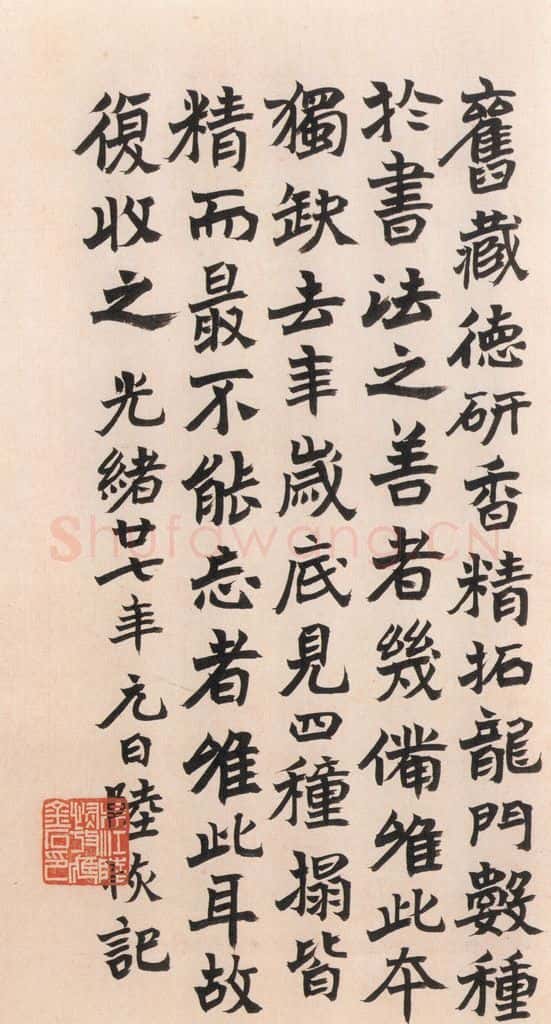 舊藏德研香精拓龍門數種
於書法之善者幾備惟此本
獨缺去年歲底見四種搨皆
精而最不能忘者惟此耳故
復收之 光緒廿七年元日陸恢記
Shufawang.CN